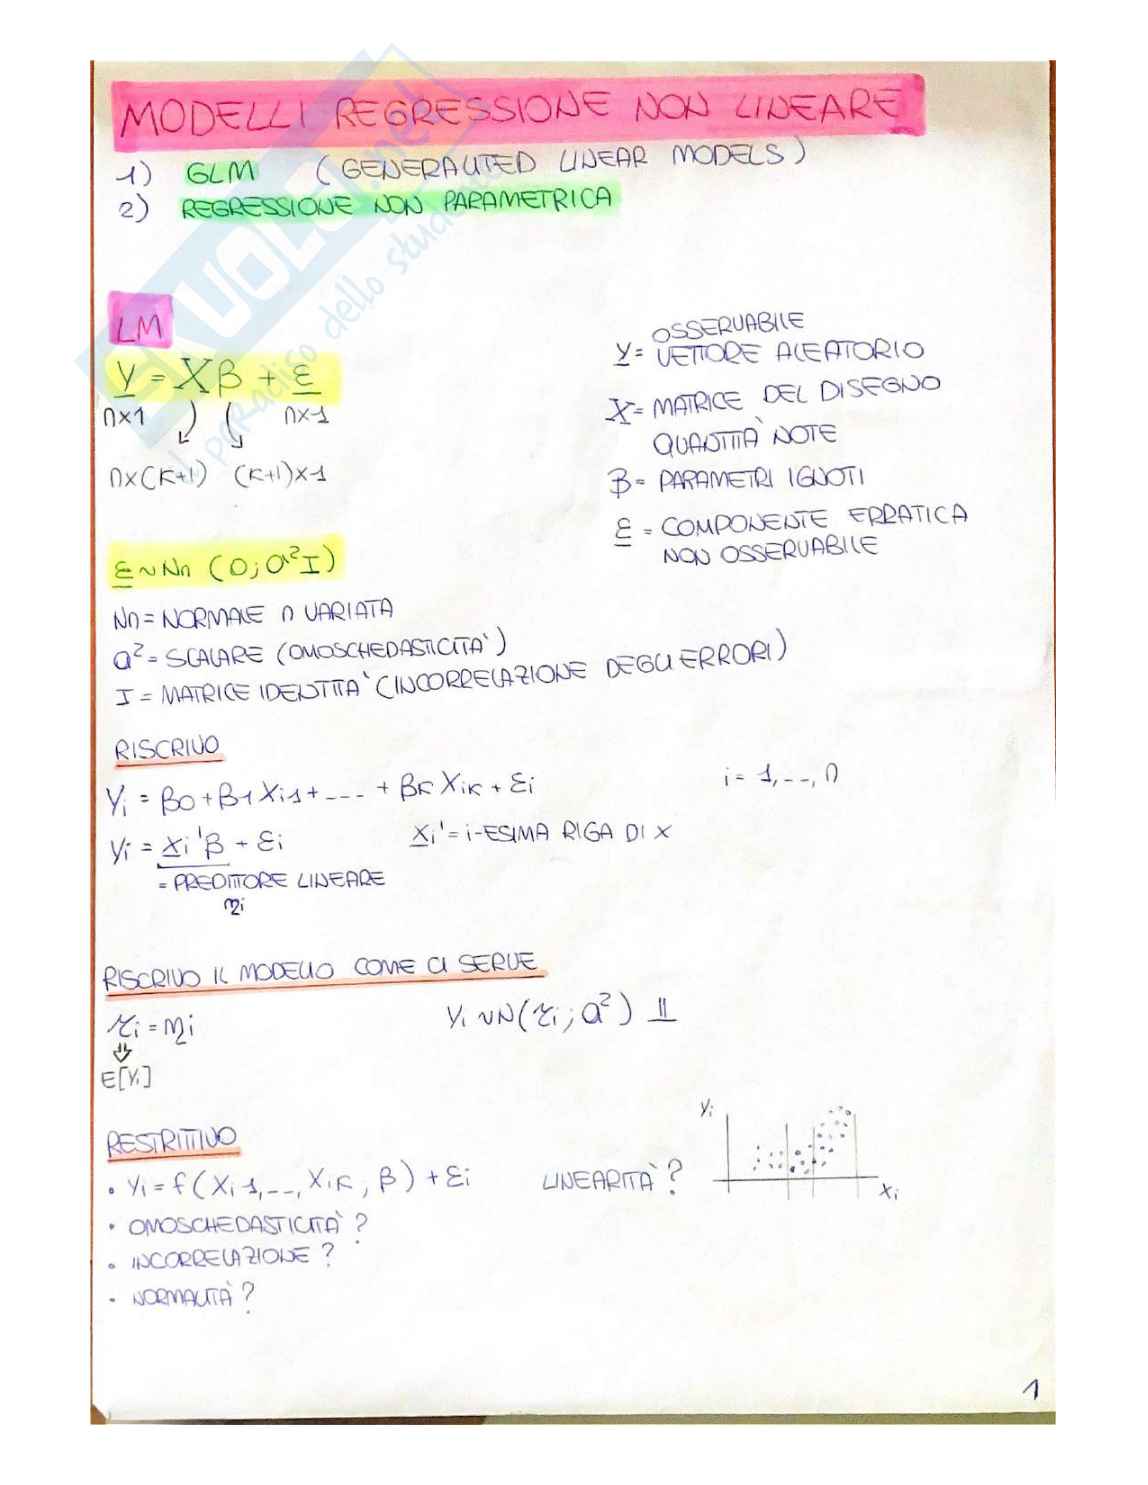 MODELLI REGRESSIONE NON LINEARE
1) GLM (GENERALITED LINEAR MODELS)
2) REGRESSIONE NON PARAMETRICA
LM
Y = Xβ + ε
n×1 n×1
n×(K+1) (K+1)×1
OSSERVABILE
Y = VETTORE ALEATORIO
X = MATRICE DEL DISEGNO
QUANTITÀ NOTE
β = PARAMETRI IGNOTI
ε = COMPONENTE ERRATICA
NON OSSERVABILE
ε ~ Nn (0; σ²I)
Nn = NORMALE n VARIATA
σ² = SCALARE (OMOSCHEDASTICITÀ)
I = MATRICE IDENTITÀ (INCORRELAZIONE DEGLI ERRORI)
RISCRIVO
Yi = β0 + β1 Xi1 + ---- + βK XiK + εi i = 1,--, n
Yi = Xi'β + εi Xi' = i-ESIMA RIGA DI X
= PREDITTORE LINEARE
ηi
RISCRIVO IL MODELLO COME CI SERVE
μi = ηi Yi ~ N(μi; σ²) ⫫
⇓
E[Yi]
RESTRITTIVO
• Yi = f(Xi1,--, XiK, β) + εi LINEARITÀ? Yi Xi
• OMOSCHEDASTICITÀ?
• INCORRELAZIONE?
• NORMALITÀ?
1
SKUOLA.net
il paradiso dello studente